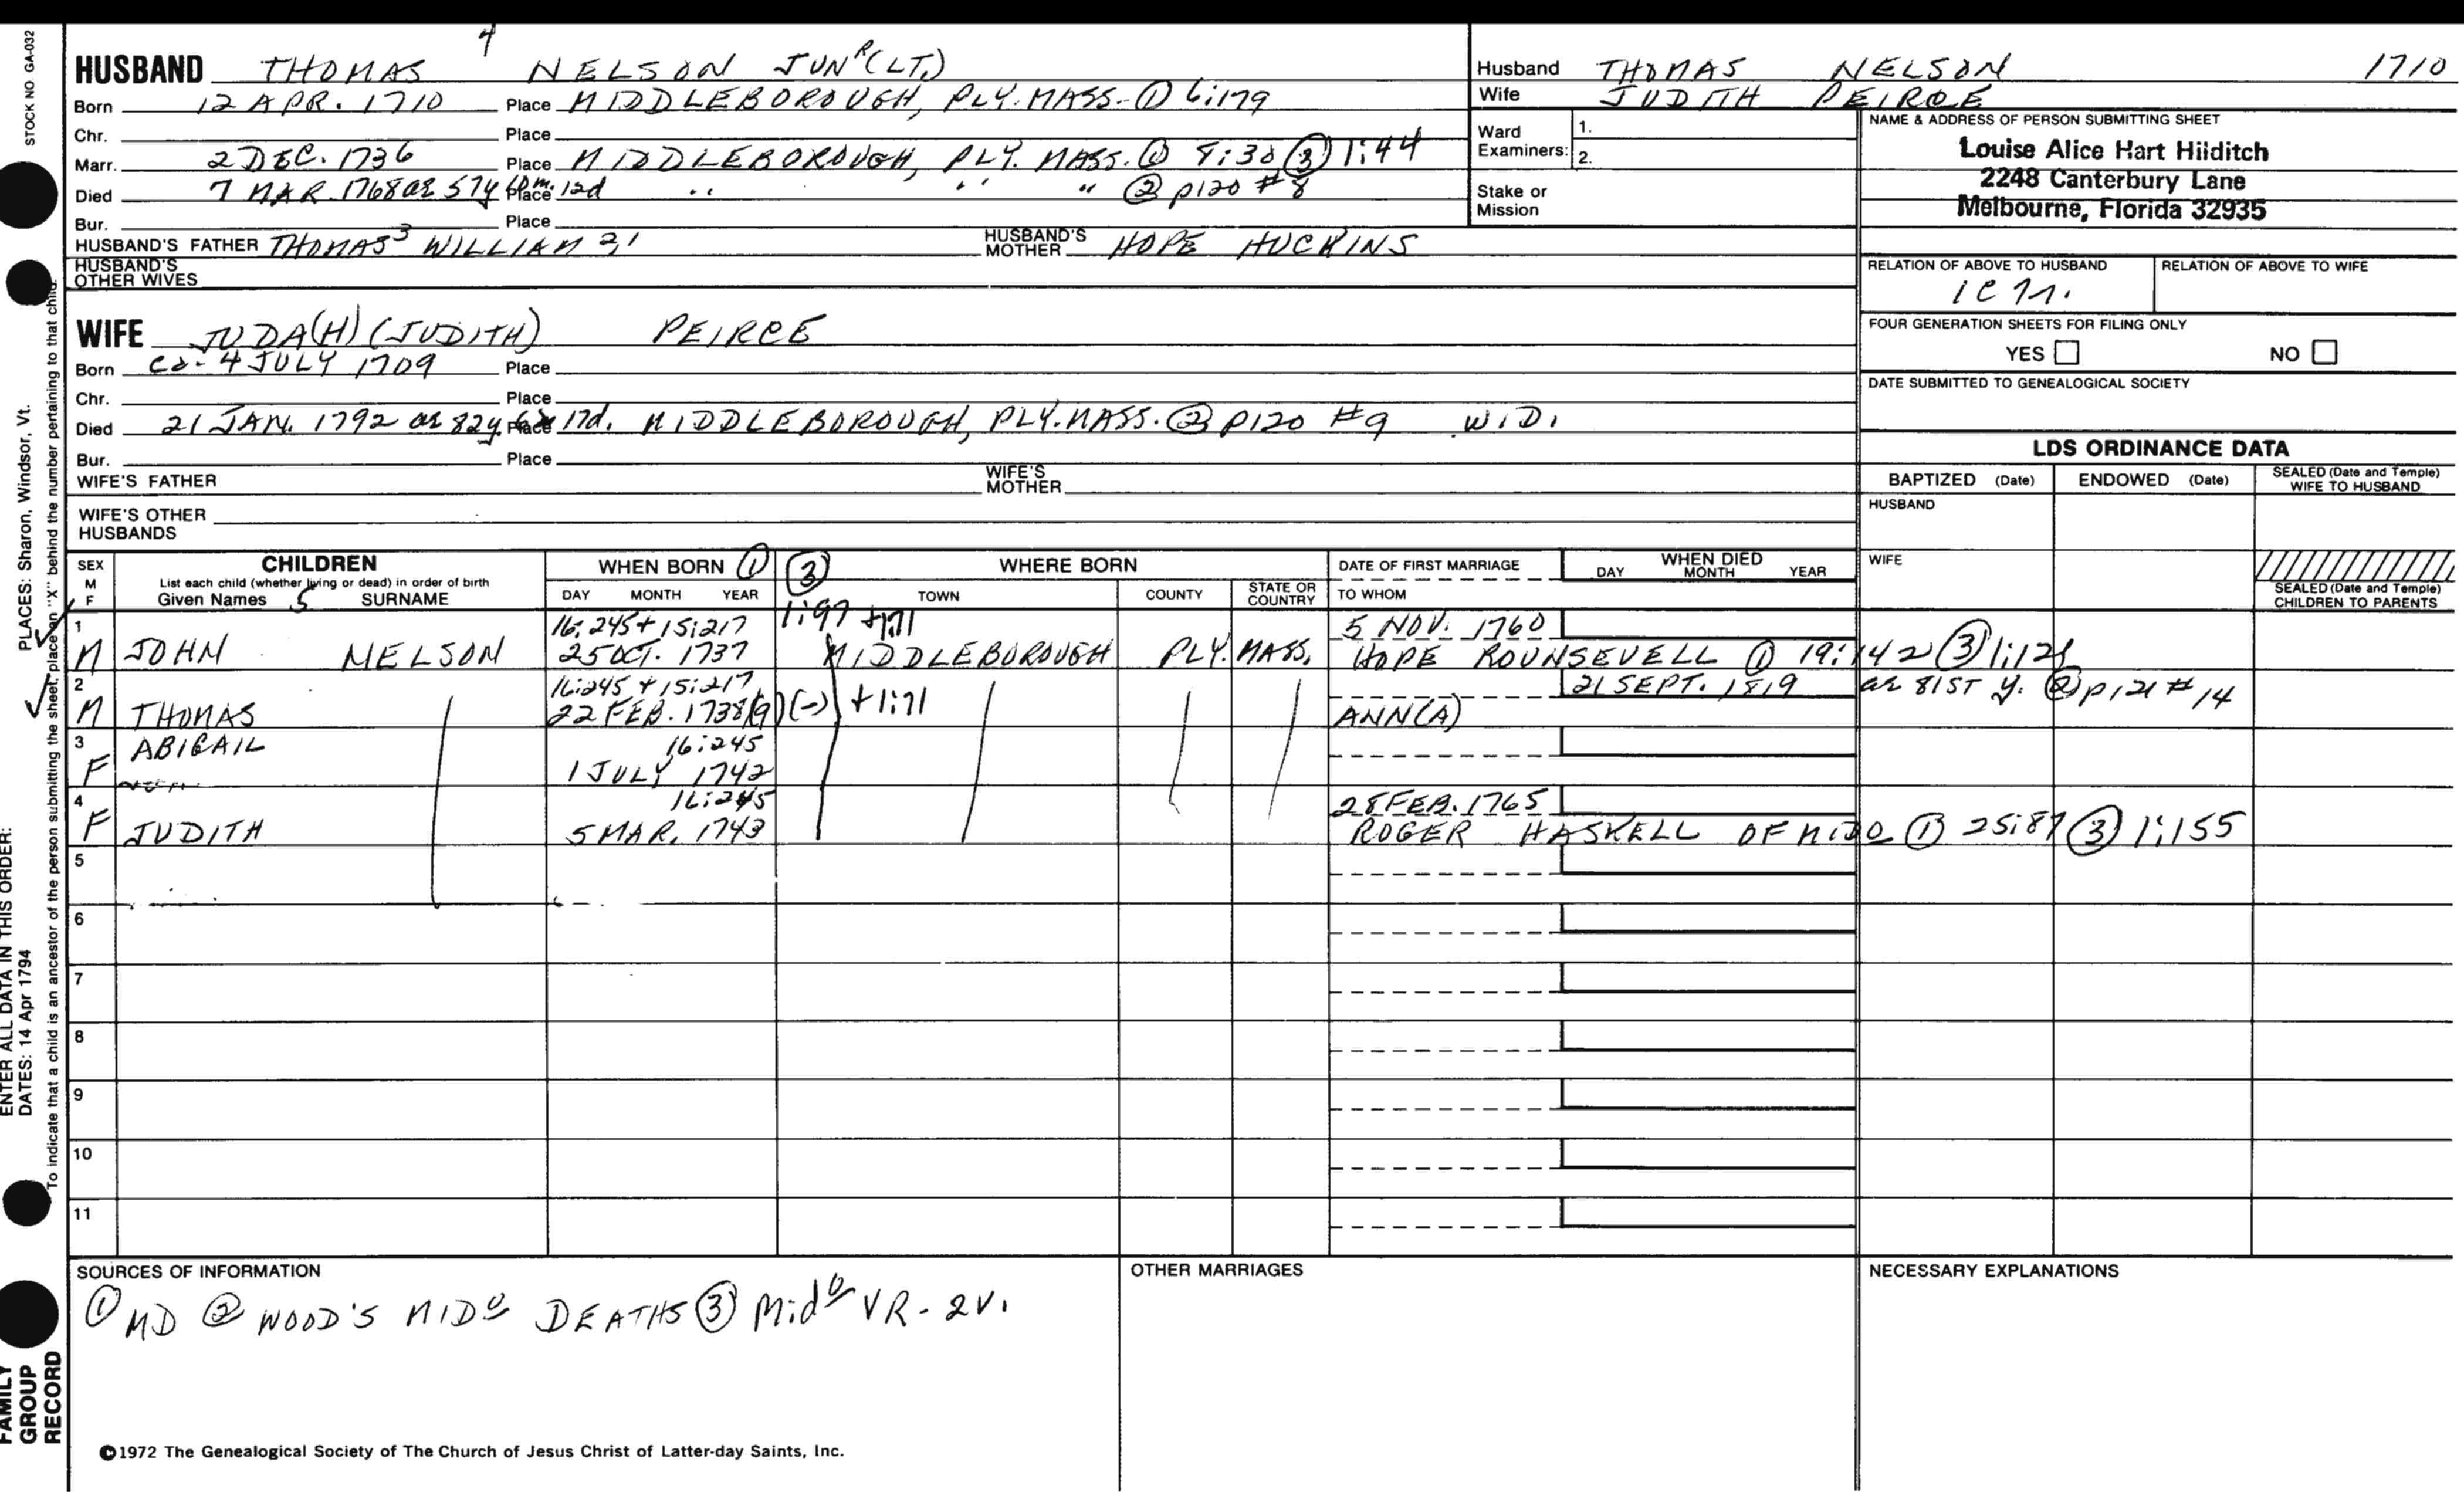 STOCK NO GA-032
HUSBAND THOMAS 4 NELSON JUNR (LT.)
Born 12 APR. 1710 Place MIDDLEBOROUGH, PLY. MASS. ① 6:179
Chr. Place
Marr. 2 DEC. 1736 Place MIDDLEBOROUGH, PLY. MASS. ① 9:38 ③ 1:44
Died 7 MAR. 1768 ae 57y 10m. 12d Place " " " ② p120 #8
Bur. Place
HUSBAND'S FATHER THOMAS3 WILLIAM 2,1 HUSBAND'S MOTHER HOPE HUCKINS
HUSBAND'S OTHER WIVES
WIFE JUDA(H) (JUDITH) PEIRCE
Born Ca. 4 JULY 1709 Place
Chr. Place
Died 21 JAN. 1792 ae 82y. 6m 17d. Place MIDDLEBOROUGH, PLY. MASS. ② p120 #9 WID.
Bur. Place
WIFE'S FATHER WIFE'S MOTHER
WIFE'S OTHER HUSBANDS
Husband THOMAS NELSON 1710
Wife JUDITH PEIRCE
Ward Examiners: 1.
2.
Stake or Mission
NAME & ADDRESS OF PERSON SUBMITTING SHEET
Louise Alice Hart Hilditch
2248 Canterbury Lane
Melbourne, Florida 32935
RELATION OF ABOVE TO HUSBAND RELATION OF ABOVE TO WIFE
FOUR GENERATION SHEETS FOR FILING ONLY
YES NO
DATE SUBMITTED TO GENEALOGICAL SOCIETY
LDS ORDINANCE DATA
BAPTIZED (Date) ENDOWED (Date) SEALED (Date and Temple) WIFE TO HUSBAND
HUSBAND
WIFE
SEALED (Date and Temple) CHILDREN TO PARENTS
SEX M F
CHILDREN
List each child (whether living or dead) in order of birth
Given Names 5 SURNAME
WHEN BORN ①
DAY MONTH YEAR
③ WHERE BORN
TOWN COUNTY STATE OR COUNTRY
DATE OF FIRST MARRIAGE
TO WHOM
WHEN DIED
DAY MONTH YEAR
1 16:245 + 15:217 1:97 + 1:71 5 NOV. 1760
M JOHN NELSON 25 OCT. 1737 MIDDLEBOROUGH PLY. MASS. HOPE ROUNSEVELL ① 19:142 ③ 1:121
2 16:245 + 15:217 21 SEPT. 1819 ae 81ST y. ② p121 #14
M THOMAS 22 FEB. 1738(9) (-) + 1:71 ANN(A)
3 ABIGAIL 16:245
F 1 JULY 1742
4 16:245 28 FEB. 1765
F JUDITH 5 MAR. 1743 ROGER HASKELL OF MIDO ① 25:87 ③ 1:155
5
6
7
8
9
10
11
SOURCES OF INFORMATION
① MD ② WOOD'S MIDO DEATHS ③ Mido VR - 2V.
OTHER MARRIAGES
NECESSARY EXPLANATIONS
©1972 The Genealogical Society of The Church of Jesus Christ of Latter-day Saints, Inc.
FAMILY GROUP RECORD
ENTER ALL DATA IN THIS ORDER:
DATES: 14 Apr 1794
PLACES: Sharon, Windsor, Vt.
To indicate that a child is an ancestor of the person submitting the sheet, place an "X" behind the number pertaining to that child.